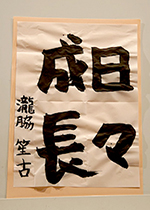 日々
成長
瀧脇 笙古